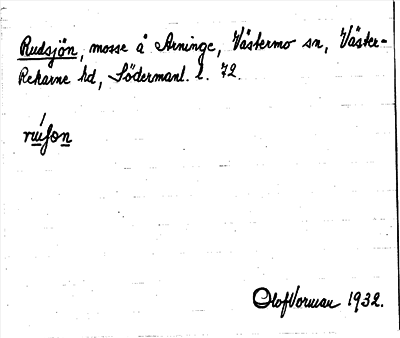 Rudsjön, mosse å Arninge, Västermo sn, Väster-
Rekarne hd, Södermanl. l. 72.
Olof Vorman 1932.